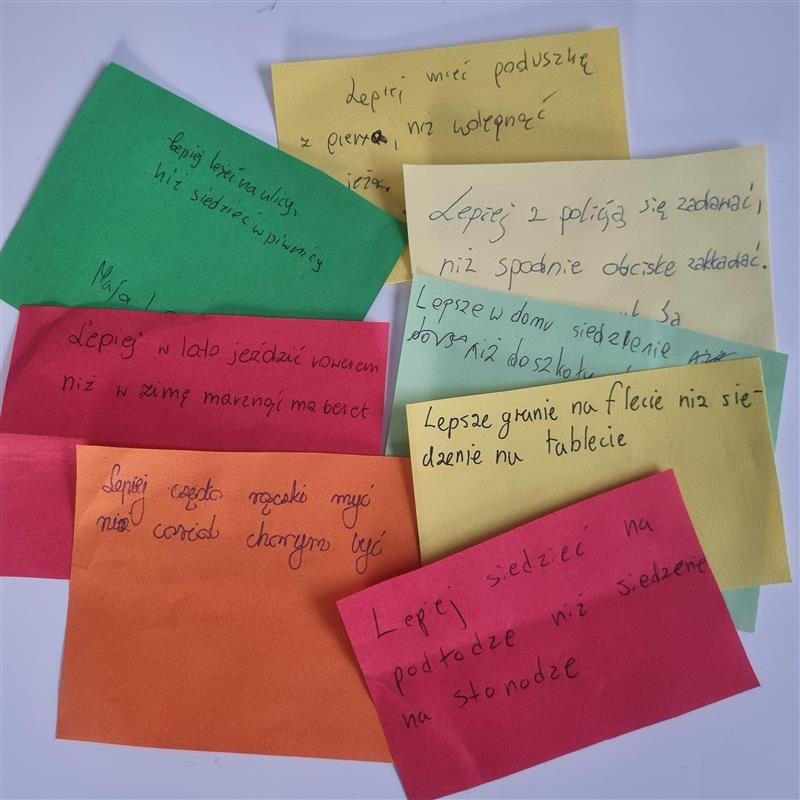 Lepiej mieć poduszkę
z pierza, niż wdepnąć
jeża.
Lepiej leżeć na ulicy,
niż siedzieć w piwnicy
Maja
Lepiej z policją się zadawać,
niż spodnie obciske zakładać.
Lepsze w domu siedzenie
niż do szkoły
Lepiej w lato jeździć rowerem
niż w zimę marznąć ma beret
Lepsze granie na flecie niż sie-
dzenie na tablecie
Lepiej często rączki myć
niż coraz chorym być
Lepiej siedzieć na
podłodze niż siedzenie
na stonodze